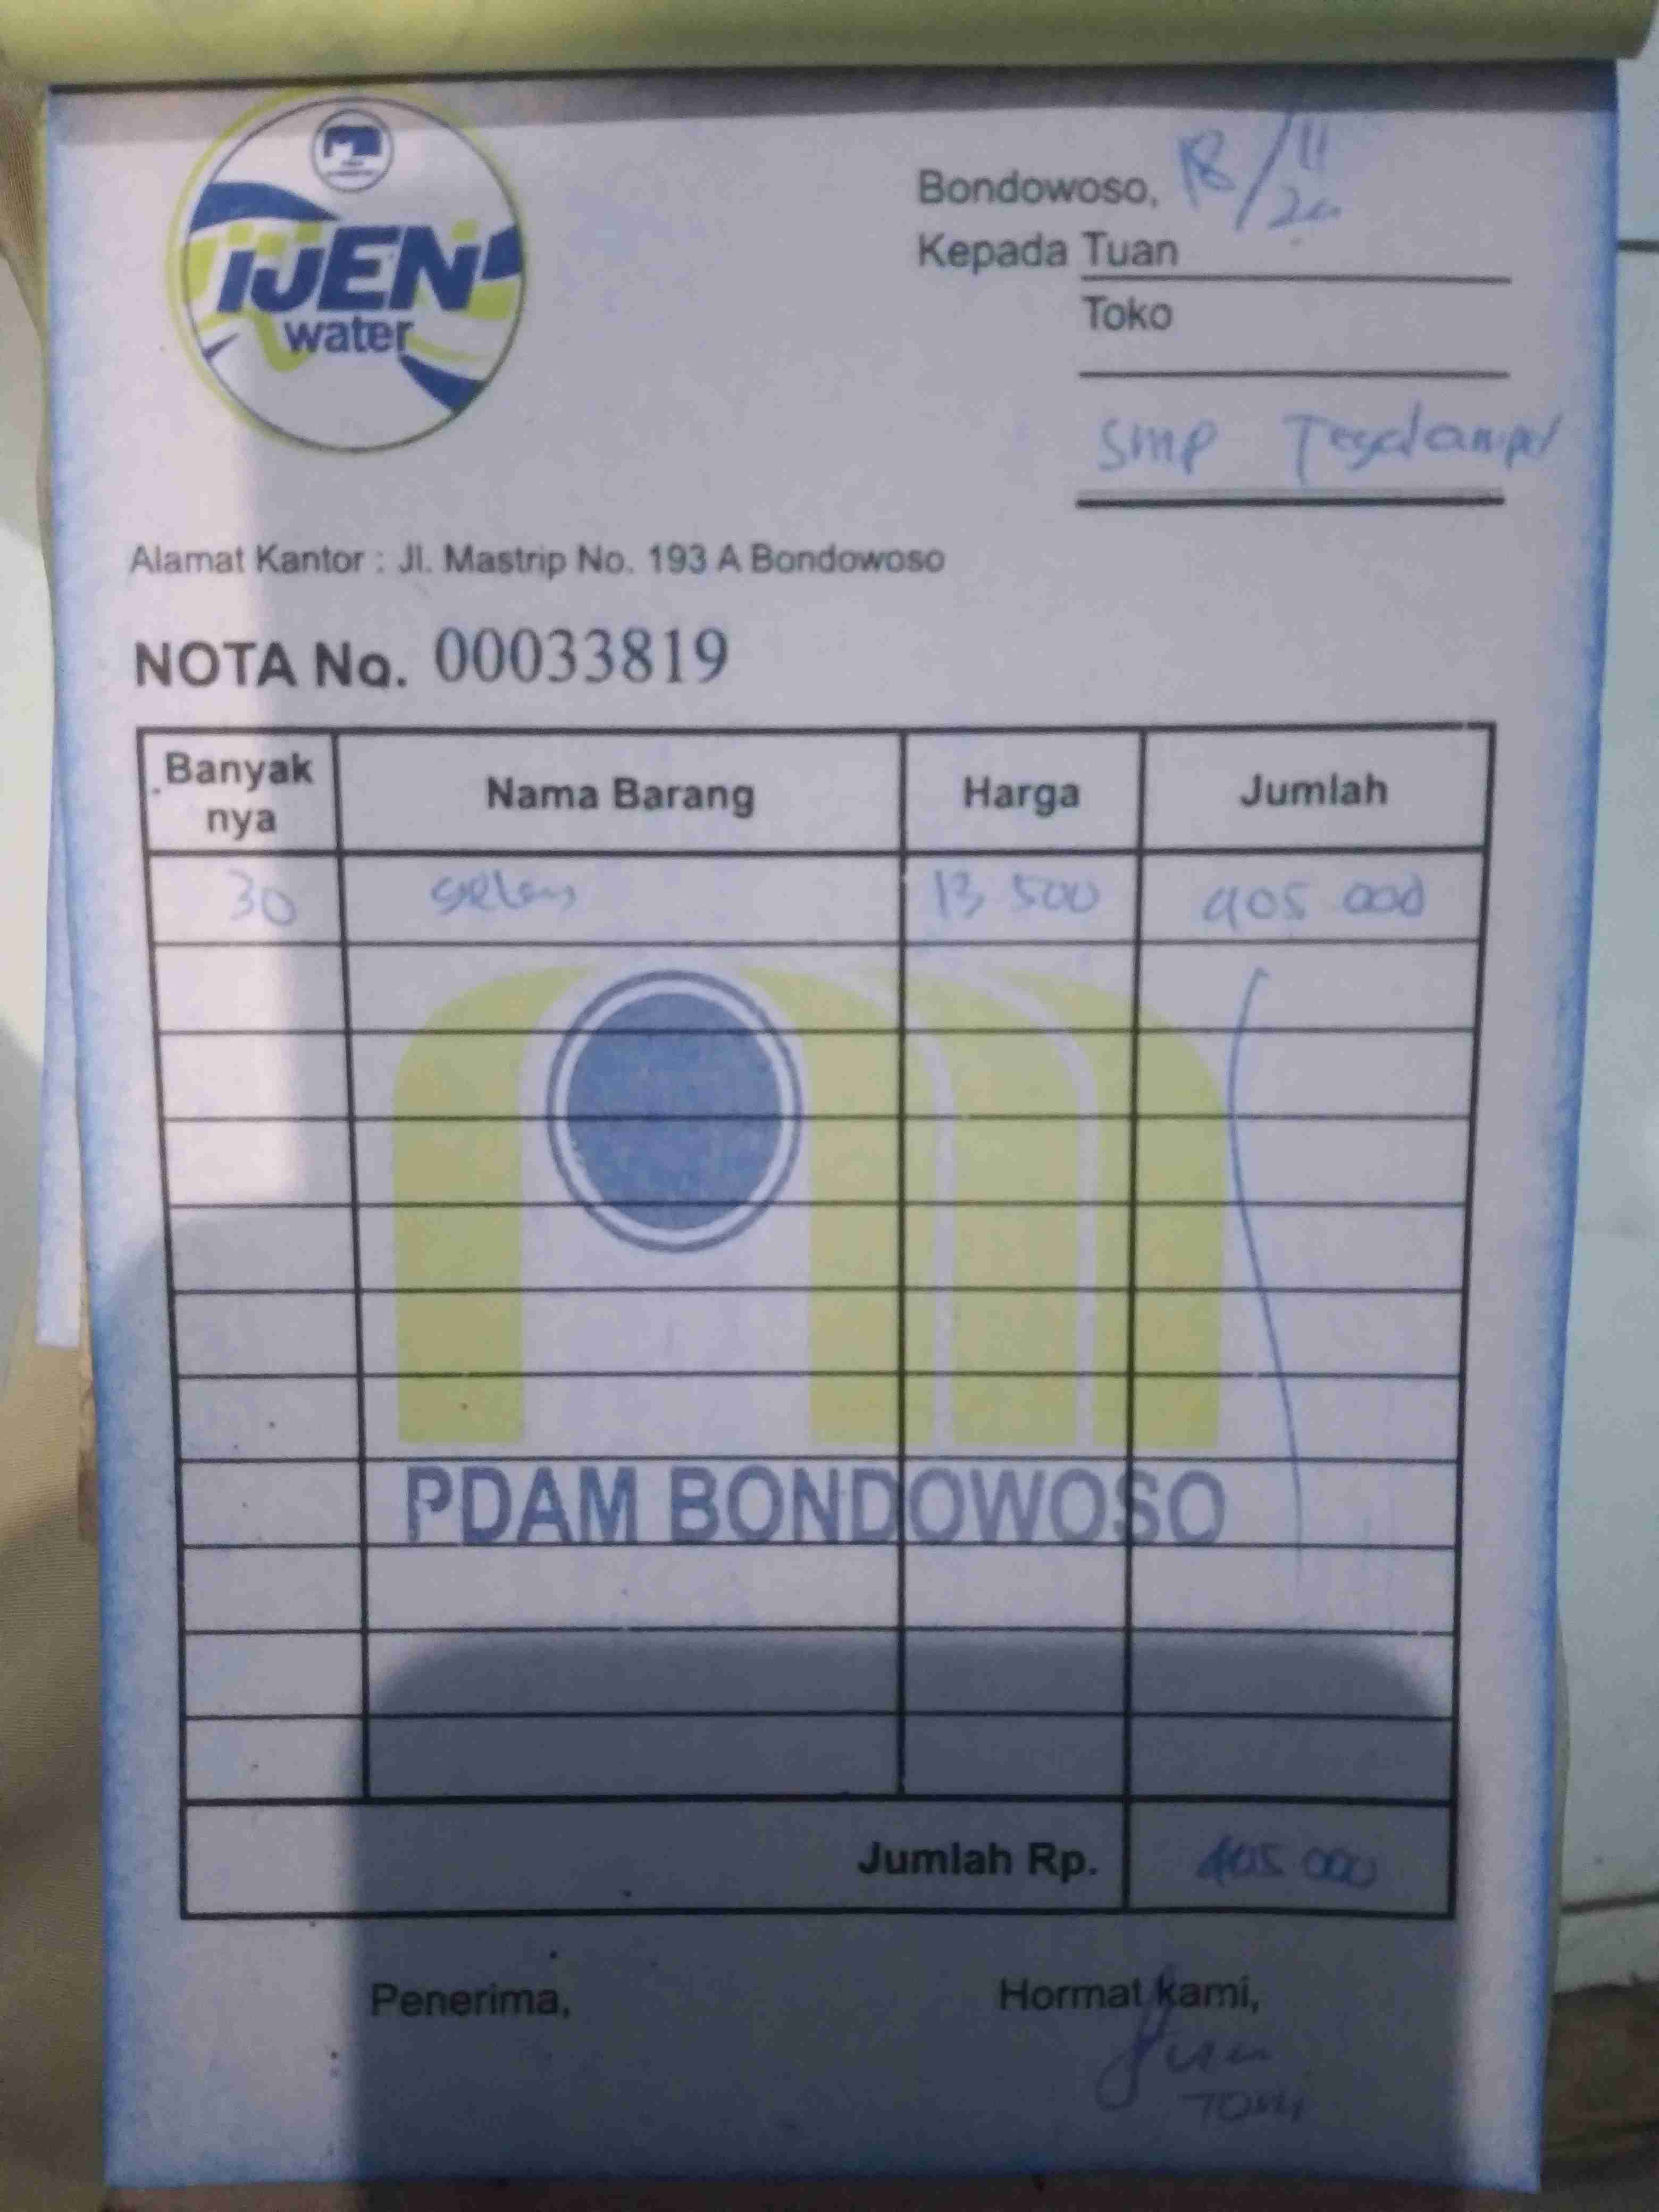 IJEN
water
Bondowoso, 18/11
Kepada Tuan
Toko
SMP Tegalampel
Alamat Kantor : Jl. Mastrip No. 193 A Bondowoso
NOTA No. 00033819
Banyak nya Nama Barang Harga Jumlah
30 gelas 13 500 405 000
PDAM BONDOWOSO
Jumlah Rp. 405 000
Penerima, Hormat kami,